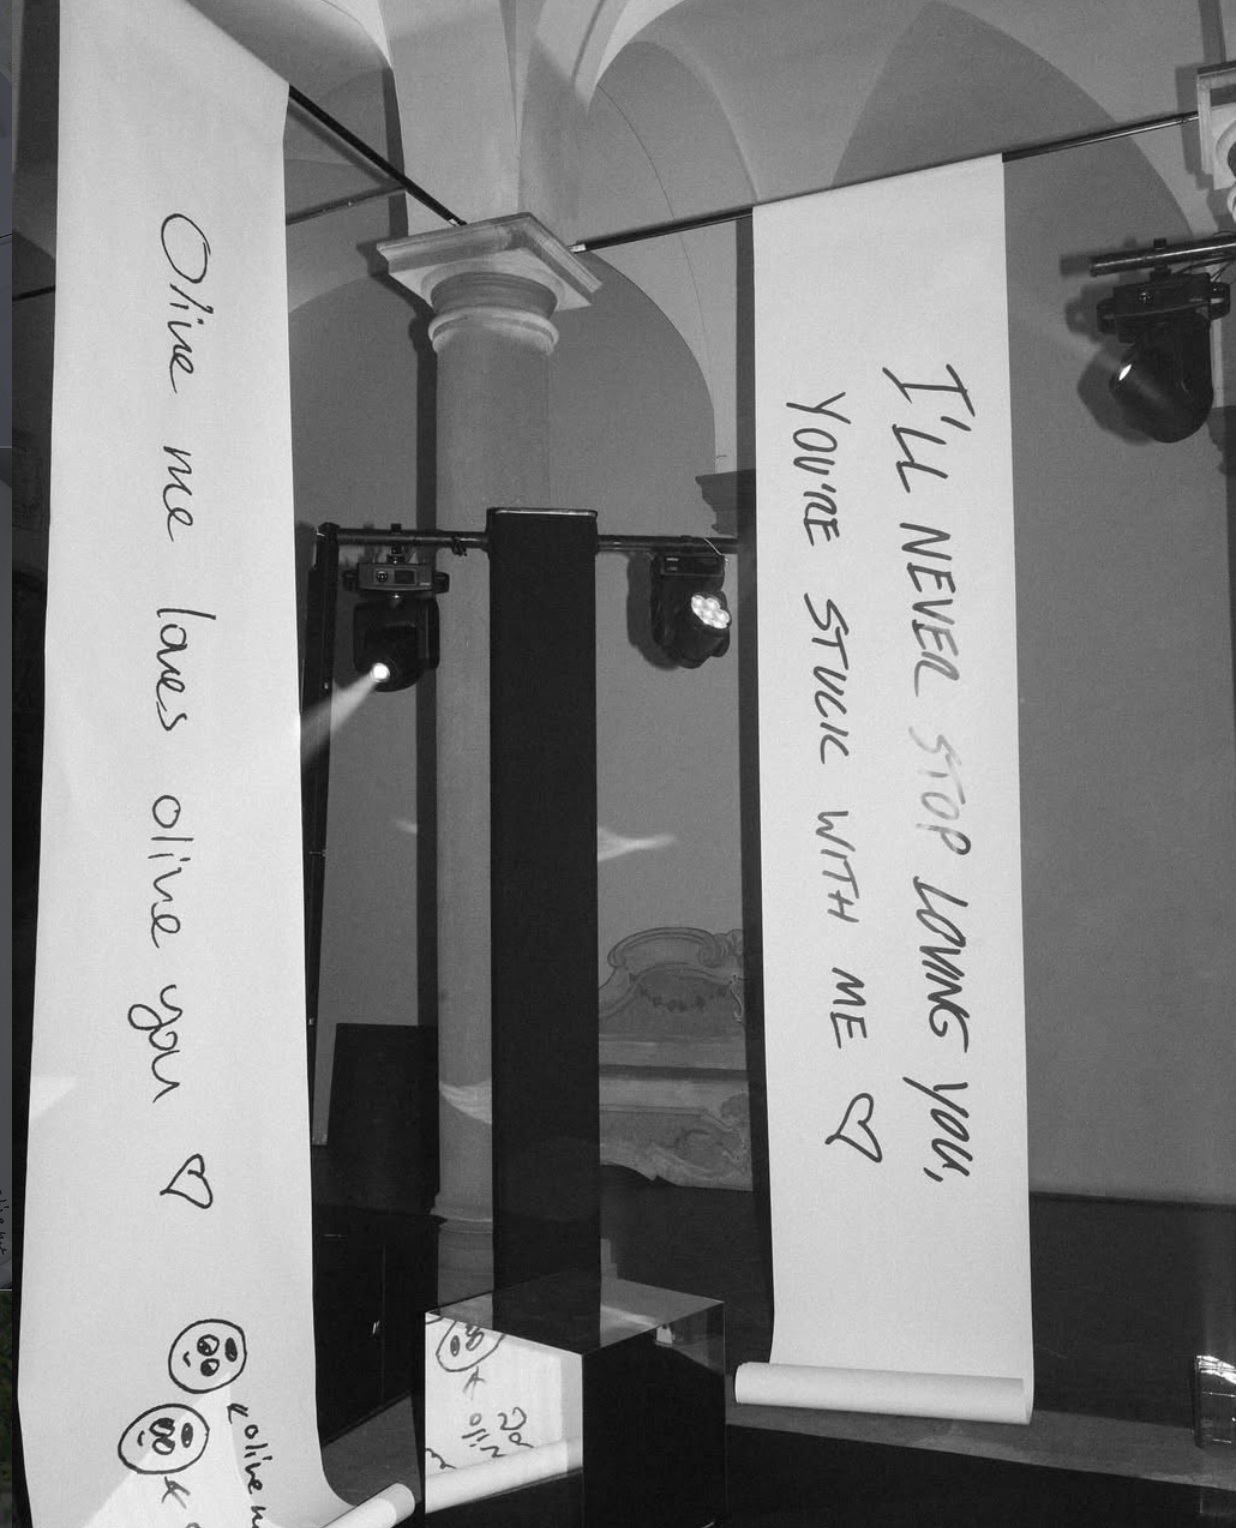 Olive me loves olive you ♡
olive
I'LL NEVER STOP LOVING YOU,
YOU'RE STUCK WITH ME ♡